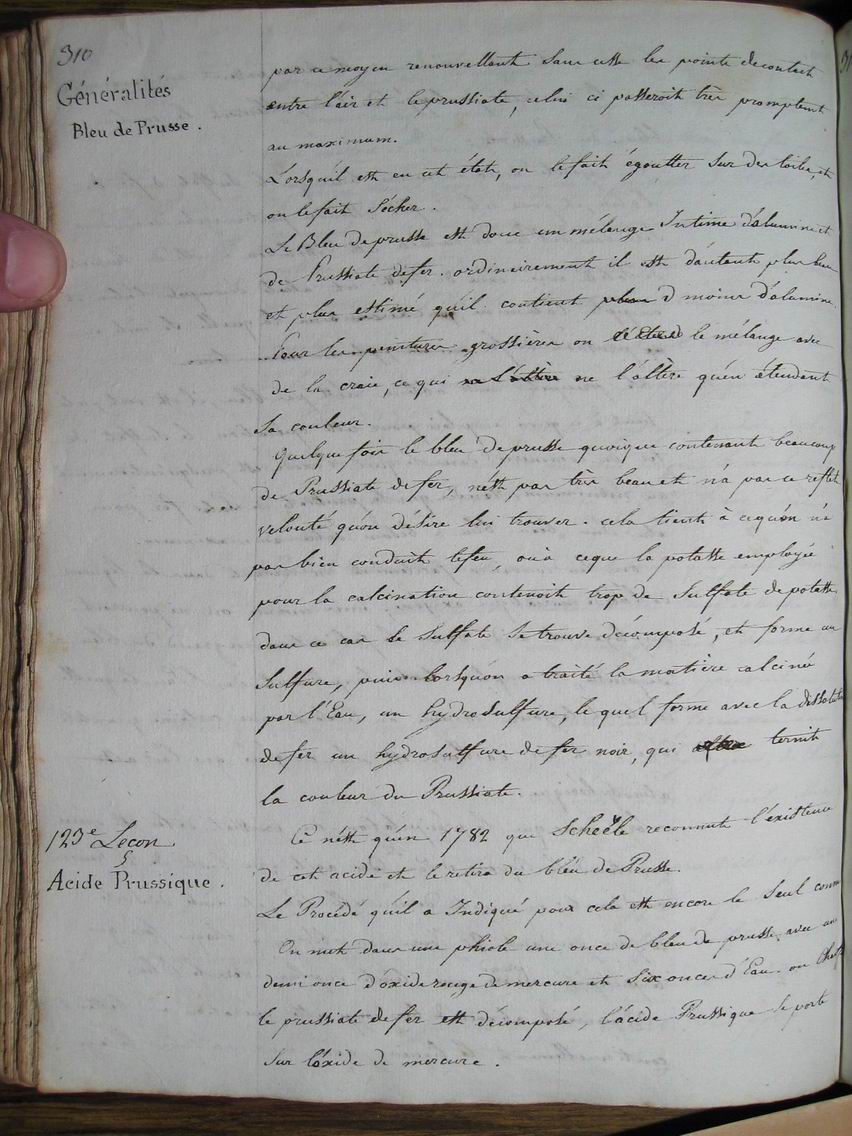 310
Généralités
Bleu de Prusse.
par ce moyen renouvellant sans cesse les points de contact
entre l'air et le prussiate, celui ci passeroit très promptement
au maximum.
Lorsqu'il est en cet état, on le fait égoutter sur des toiles, et
on le fait sécher.
Le Bleu de prusse est donc un mélange Intime d'alumine et
de Prussiate de fer. ordinairement il est d'autant plus beau
et plus estimé qu'il contient moins d'alumine.
Pour les peintures grossières on le mélange avec
de la craie, ce qui ne l'altère qu'en étendant
sa couleur.
Quelque fois le bleu de prusse quoique contenant beaucoup
de Prussiate de fer, n'est pas très beau et n'a pas ce reflet
velouté qu'on désire lui trouver. cela tient à ce qu'on n'a
pas bien conduit le feu, ou à ce que la potasse employée
pour la calcination contenoit trop de Sulfate de potasse
dans ce cas le Sulfate se trouve décomposé, et forme un
Sulfure, puis lorsqu'on a traité la matière calciné
par l'Eau, un hydrosulfure, lequel forme avec la dissolut
de fer un hydrosulfure de fer noir, qui ternit
la couleur du Prussiate.
123e Lecon
§
Acide Prussique.
Ce n'est qu'en 1782 que Scheële reconnut l'existence
de cet acide et le retira du bleu de Prusse.
Le Procédé qu'il a Indiqué pour cela est encore le seul conn
On met dans une phiole une once de bleu de prusse avec un
demi once d'oxide rouge de mercure et six onces d'Eau. on
le prussiate de fer est décomposé, l'acide Prussique se porte
sur l'oxide de mercure.